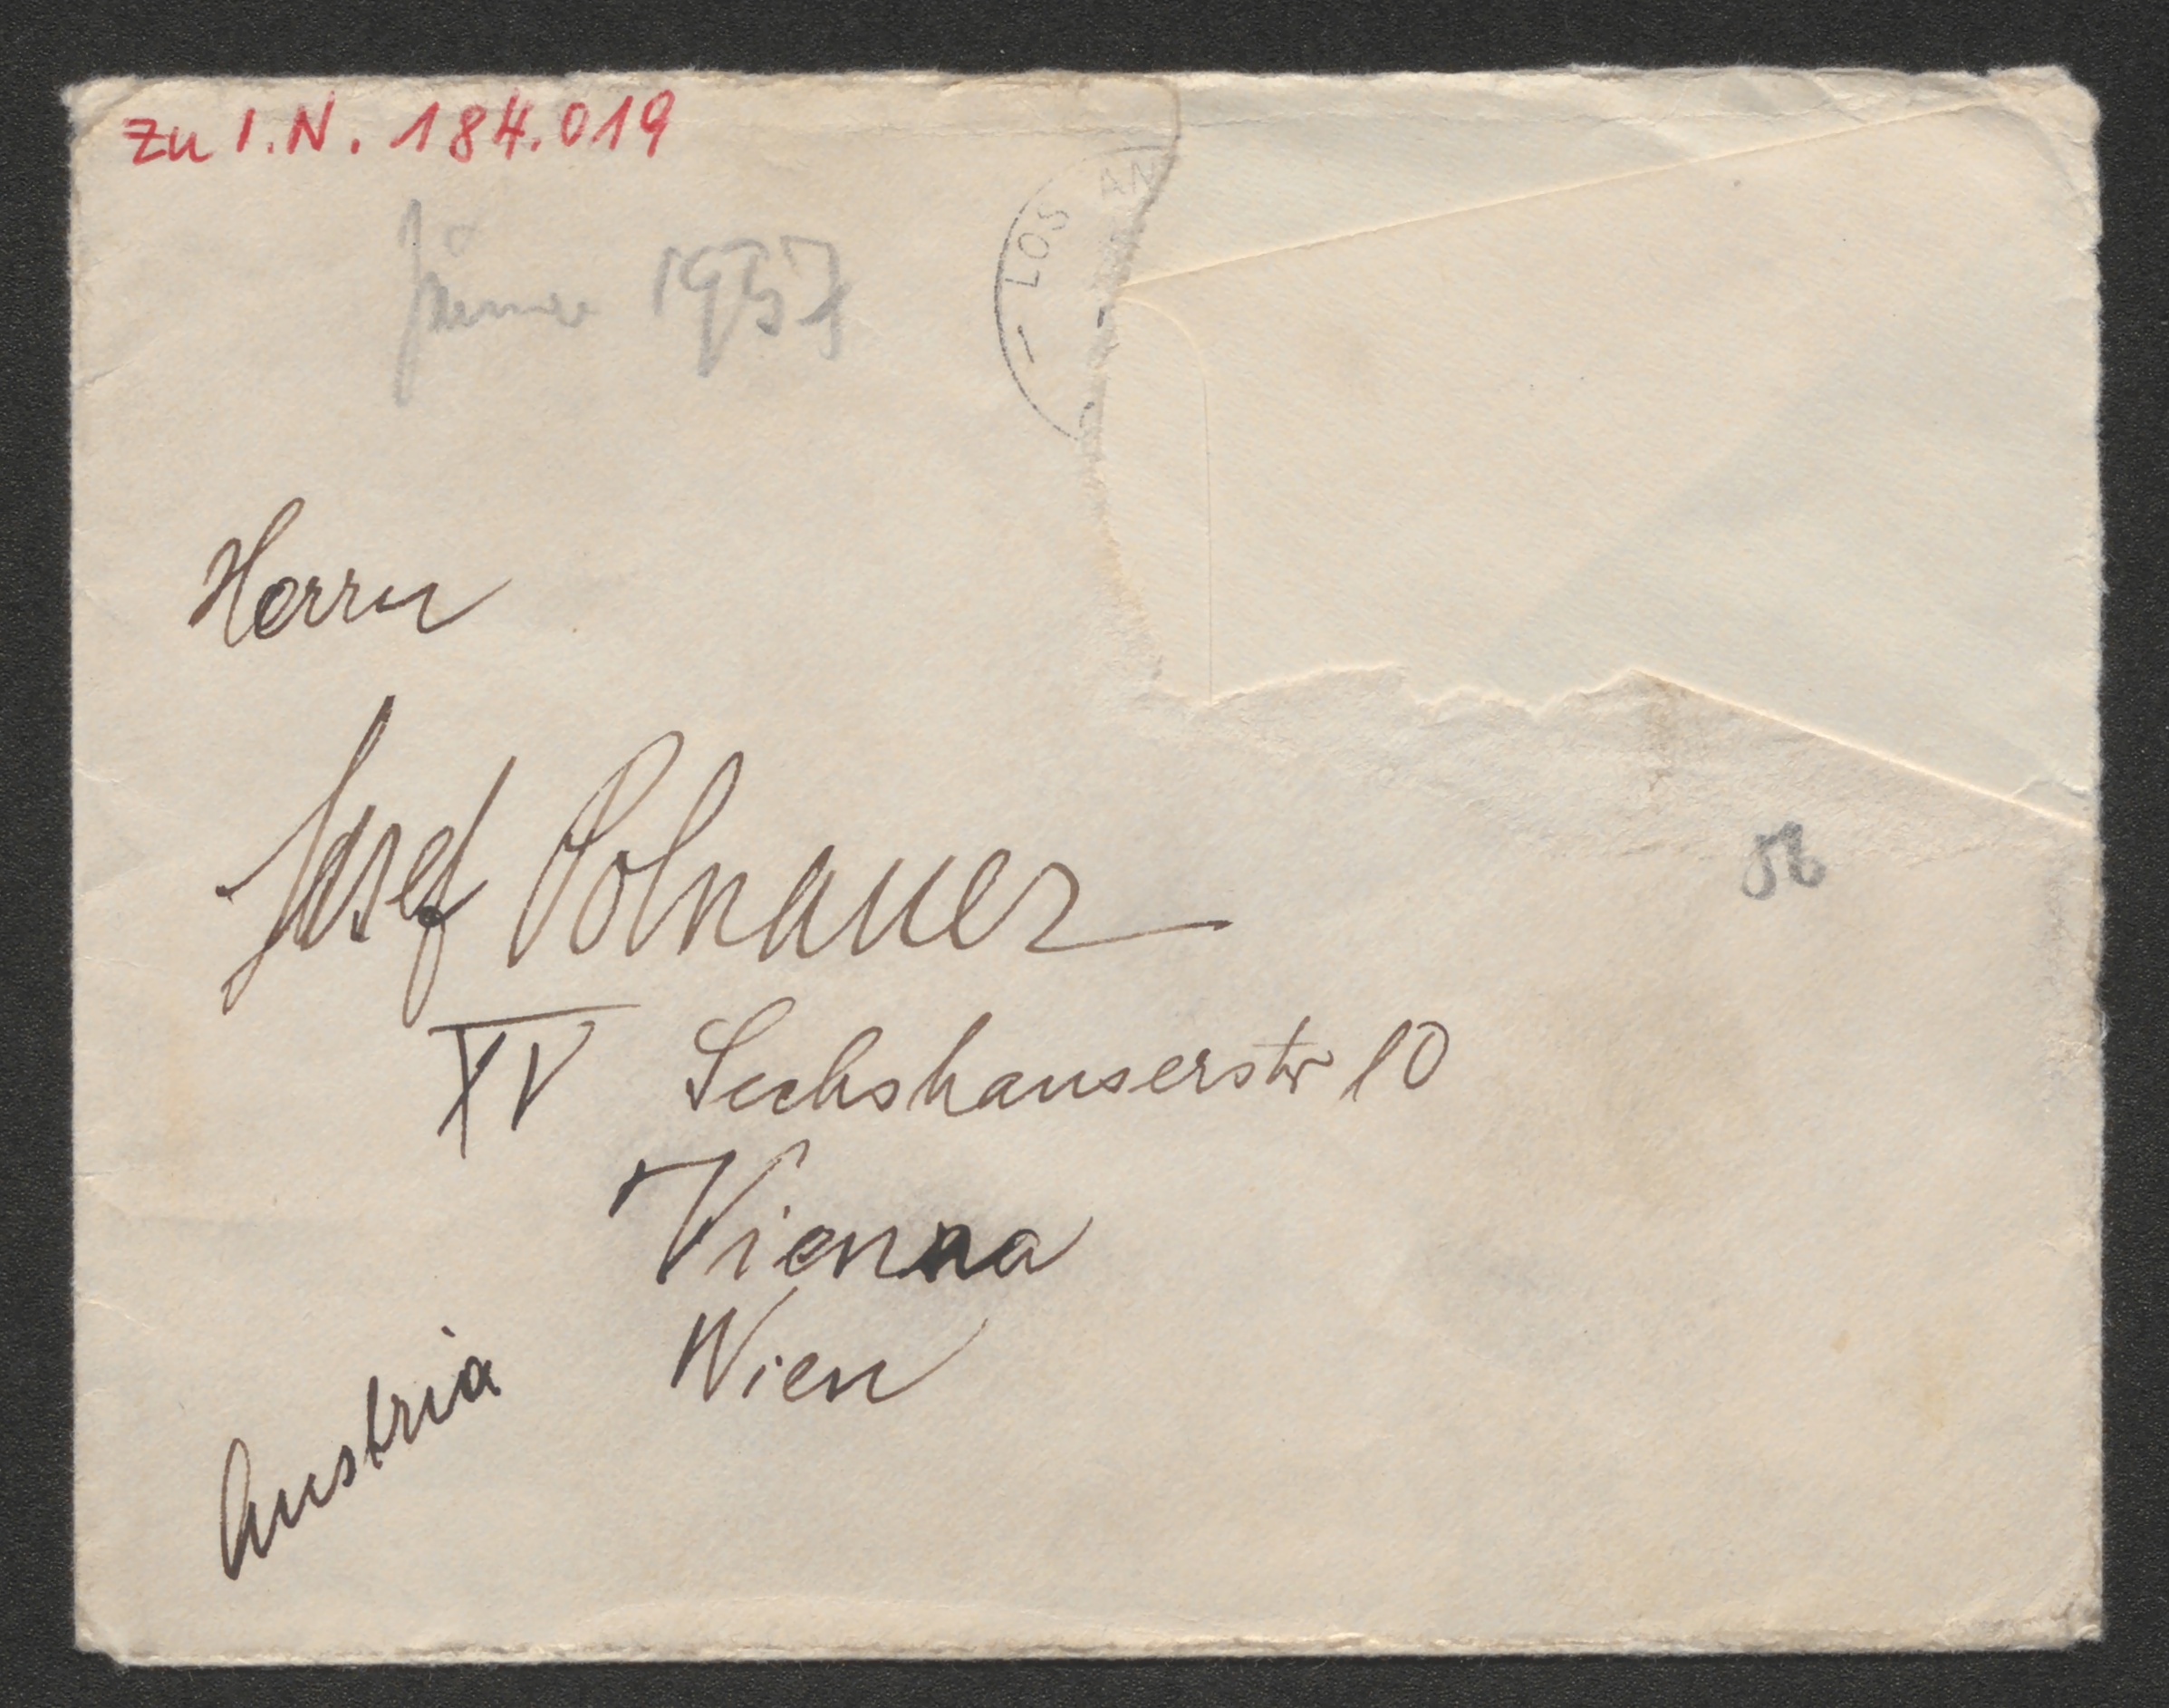 zu I.N. 184.019
Jänner 1937
LOS AN
Herrn
Josef Polnauer
XV Sechshauserstr 10
Vienna
Wien
Austria